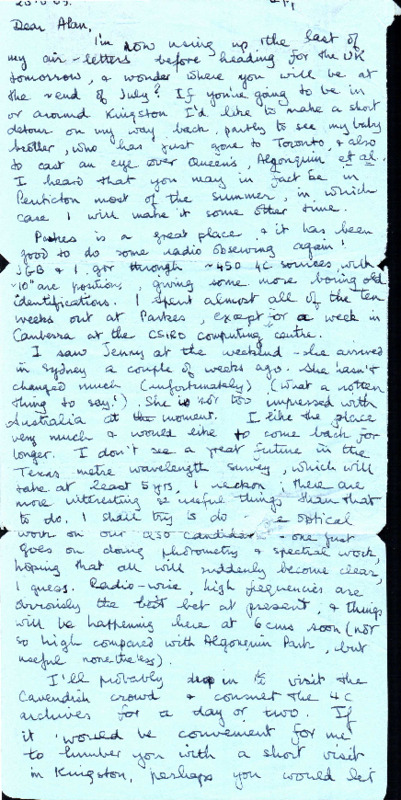 Dear Alan,
I'm now using up the last of
my air-letters before heading for the UK
tomorrow, & wonder where you will be at
the end of July? If you're going to be in
or around Kingston I'd like to make a short
detour on my way back, partly to see my baby
brother, who has just gone to Toronto, & also
to cast an eye over Queen's, Algonquin et al.
I heard that you may in fact be in
Penticton most of the summer, in which
case I will make it some other time.
Parkes is a great place & it has been
good to do some radio observing again!
JGB & I got through ~450 4C sources, with
~10" arc positions, giving some more boring old
identifications. I spent almost all of the ten
weeks out at Parkes, except for a week in
Canberra at the CSIRO computing centre.
I saw Jenny at the weekend - she arrived
in Sydney a couple of weeks ago. She hasn't
changed much (unfortunately) (what a rotten
thing to say!). She is not too impressed with
Australia at the moment. I like the place
very much & would like to come back for
longer. I don't see a great future in the
Texas metre wavelength survey, which will
take at least 5 yrs, I reckon; there are
more interesting & useful things than that
to do. I shall try to do optical
work on our QSO candidates - one just
goes on doing photometry & spectral work,
hoping that all will suddenly become clear,
I guess. Radio-wise, high frequencies are
obviously the best bet at present, & things
will be happening here at 6 cms soon (not
so high compared with Algonquin Park, but
useful nonetheless).
I'll probably drop in to visit the
Cavendish crowd & consult the 4C
archives for a day or two. If
it would be convenient for me
to lumber you with a short visit
in Kingston, perhaps you would let